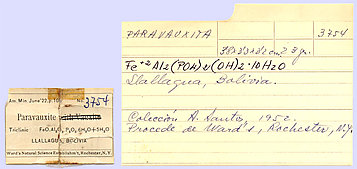 Am. Min. June '22, p. 10
No. 3754
Paravauxite
Triclinic FeO.Al₂O₃.P₂O₅.6H₂O+5H₂O
LLALLAGUA, BOLIVIA
Ward's Natural Science Establishm't, Rochester, N.Y.
PARAVAUXITA
3754
cm 2 gr.
Fe+2 Al2(PO4)2(OH)2·10H2O
Llallagua, Bolivia.
Colección A. Santo, 1952.
Procede de Ward's, Rochester, N.Y.